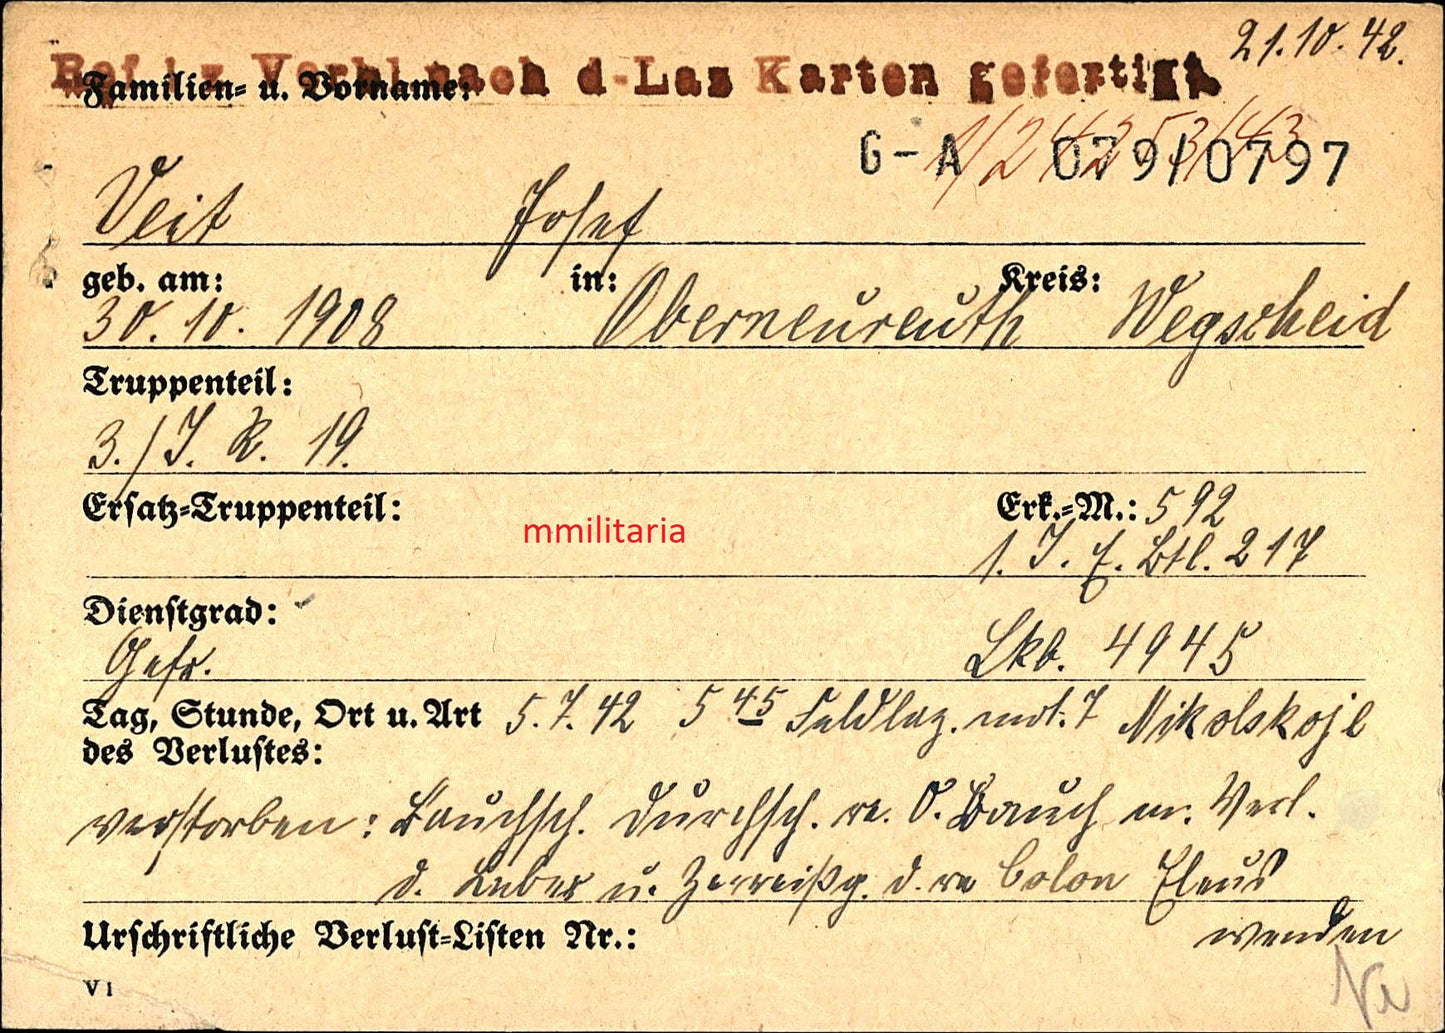 21.10.42.
nach d-Las Karten gefertigt
Familien= u. Vorname:
G-A 079/0797
Veit Josef
geb. am: in: Kreis:
30. 10. 1908 Oberneureuth Wegscheid
Truppenteil:
3./J. R. 19.
Ersatz=Truppenteil: Erk.=M.: 592
mmilitaria
1. J. E. Btl. 217
Dienstgrad:
Gefr. Lkb. 4945
Tag, Stunde, Ort u. Art 5.7.42 5 45 Feldlaz. mot. 7 Nikolskoje
des Verlustes:
verstorben: Bauchsch. Durchsch. re. O. Bauch m. Verl.
d. Leber u. Zerreißg. d. re Colon Ileus
Urschriftliche Verlust=Listen Nr.: wenden
V 1